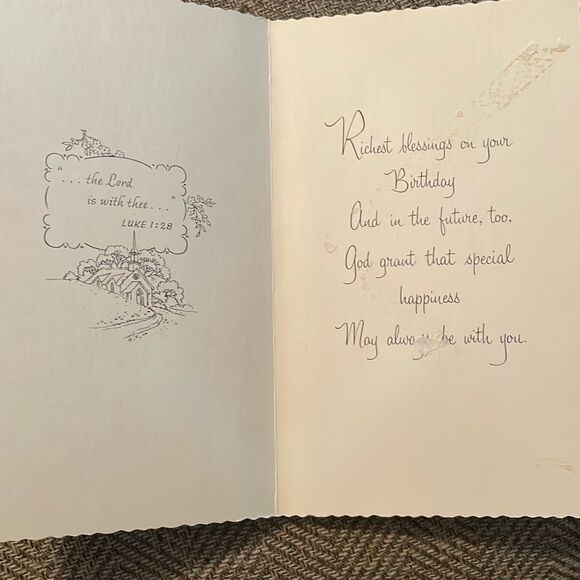 "... the Lord
is with thee..."
LUKE 1:28
Richest blessings on your
Birthday
And in the future, too,
God grant that special
happiness
May always be with you.